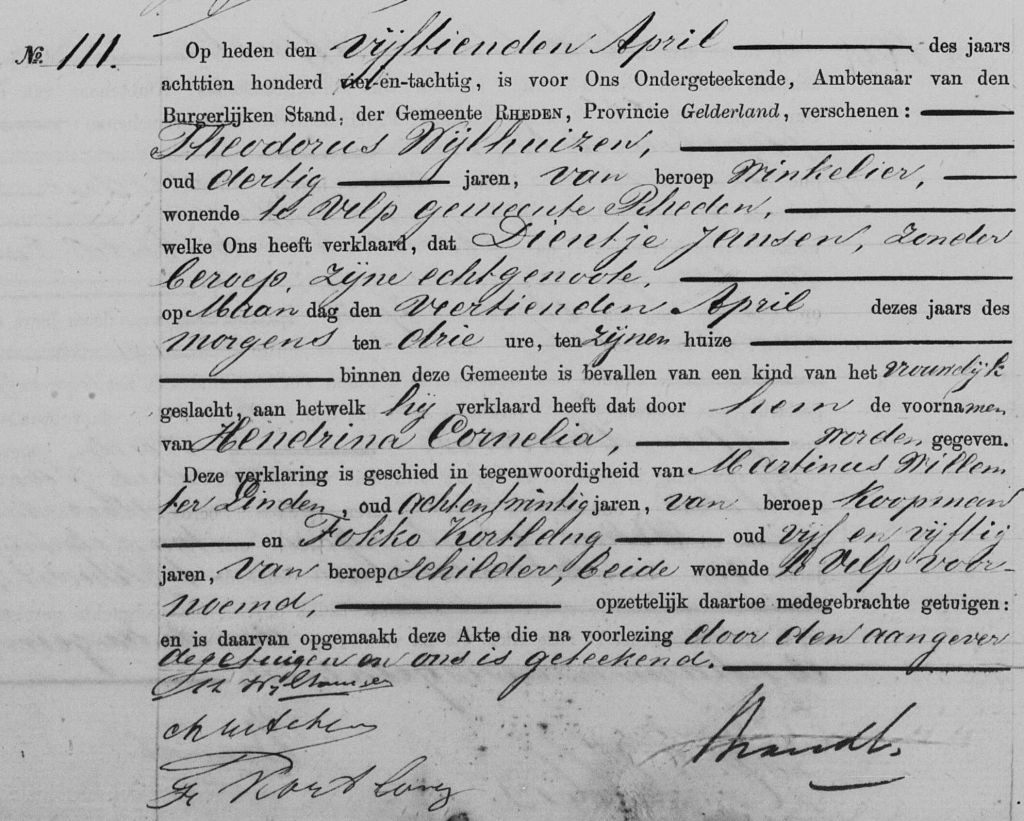 No. 111.
Op heden den vijftienden April des jaars
achttien honderd vier-en-tachtig, is voor Ons Ondergeteekende, Ambtenaar van den
Burgerlijken Stand, der Gemeente RHEDEN, Provincie Gelderland, verschenen:
Theodorus Wijlhuizen,
oud dertig jaren, van beroep Winkelier,
wonende te Velp gemeente Rheden,
welke Ons heeft verklaard, dat Dientje Jansen, zonder
beroep, zijne echtgenoote,
op Maandag den veertienden April dezes jaars des
morgens ten drie ure, ten zijnen huize
binnen deze Gemeente is bevallen van een kind van het vrouwelijk
geslacht, aan hetwelk hij verklaard heeft dat door hem de voornamen
van Hendrina Cornelia, worden gegeven.
Deze verklaring is geschied in tegenwoordigheid van Martinus Willem
ter Linden, oud achtentwintig jaren, van beroep Koopman
en Fokko Kortlang oud vijf en vijftig
jaren, van beroep schilder, beide wonende te Velp voor-
noemd, opzettelijk daartoe medegebrachte getuigen:
en is daarvan opgemaakt deze Akte die na voorlezing door den aangever
de getuigen en ons is geteekend.
Th Wijlhuizen
Brandt.
F. Kortlang